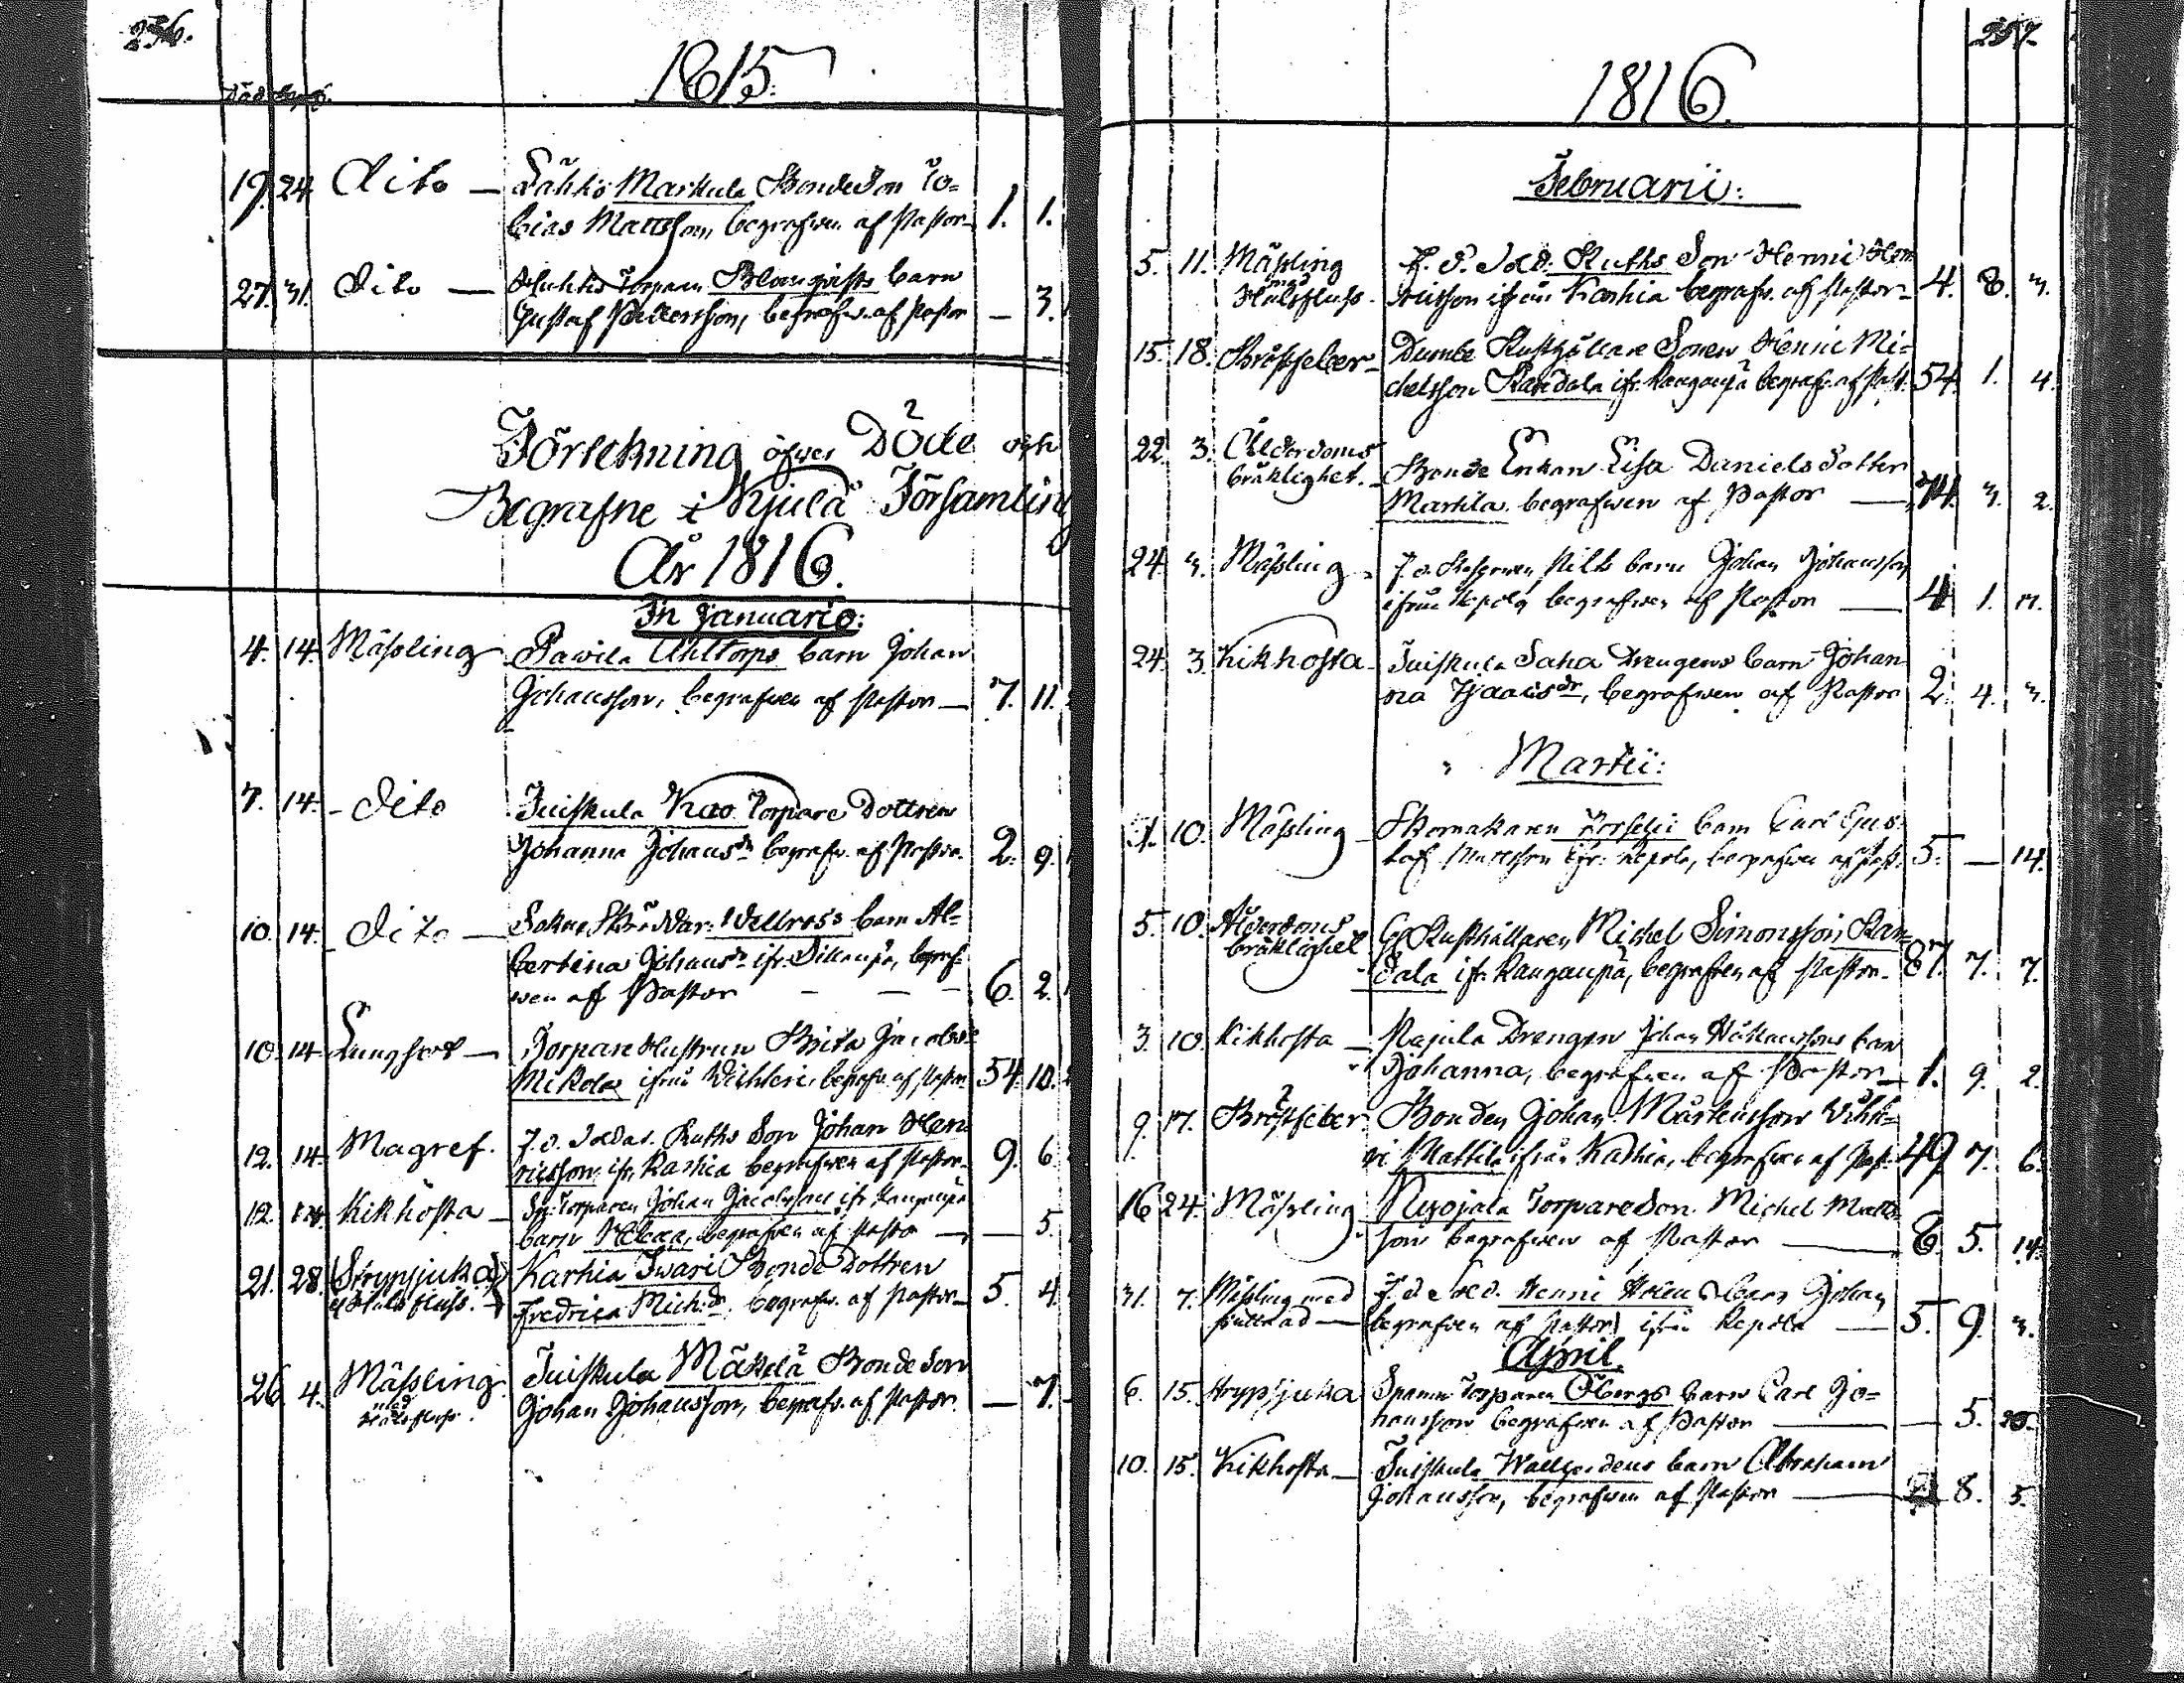 256.
1815.
Död begr.
19. 24. Dito — Lähtis Markula Bondeson To=
bias Mattsson, begrafwen af Pastor 1. 1.
27. 31. Dito — Torparn Blomqvists barn
Gustaf, begrafw. af Pastor — 3.
Förtekning öfwer Döde och
Begrafne i Kjula Församling
År 1816.
In Januario:
4. 14. Mäßling Pawila Ahltorps barn Johan
Johansson, begrafwen af Pastor — 7. 11.
7. 14. Dito Juiskula Torpare Dottren
Johanna Johansdr. begrafw. af Pastor. 2. 9.
10. 14. Dito — Sokne Skräddar. Wellross barn Al=
bertina Johansdr ifr., begraf=
wen af Pastor — — — 6. 2.
10. 14. Lungsot — Torpare Hustrun Brita Jacobsdr
Mikola ifrån, begrafw. af Pastor 54. 10.
12. 14. Magref. f.d. Soldat. Ruths Son Johan Hen=
ricsson ifr. Karhia begrafwen af Pastor 9. 6.
12. 14. Kikhosta — Sp. Torparen Johan Jacobssons ifr. Kangaupä
barn Helena, begrafwen af Pastor — — 5.
21. 28. Strypsjuka
Halsfluss. Karhia Iwari Bonde Dottren
Fredrica Mich.dr. begrafw. af Pastor 5. 4.
26. 4. Mäßling
med
Halsfluss. Juiskula Mäkelä Bondeson
Johan Johansson, begrafw. af Pastor. — 7.
257.
1816.
Februarii:
5. 11. Mäßling
med
Halsfluss. f. d. Sold. Ruths Son Henric Hen
ricsson ifrån Karhia begrafw. af Pastor 4. 8. 3.
15. 18. Bröstfeber — Dumbe Rusthållare Sonen Henric Mi=
chelsson Kandala ifr. Kangaupä begrafw. af Past. 54. 1. 4.
22. 3. Ålderdoms
bräklighet. Bonde Enkan Lisa Danielsdotter
Markila begrafwen af Pastor — 74. 3. 2.
24. 3. Mäßling. f. d. barn Johan Johansson
ifrån Kepola begrafwen af Pastor — 4. 1.
24. 3. Kikhosta — Juiskula Saha Drengens barn Johan
na Isaacsdr, begrafwen af Pastor 2. 4. 3.
Martii:
1. 10. Mäßling — Skomakaren barn Carl Gus
taf Mattsson ifr. Kepola, begrafwen af Past. 5. — 14.
5. 10. Ålderdoms
bräklighet Rusthållaren Michel Simonsson Kan=
dala ifr. Kangaupä, begrafwen af Pastor. 87. 7. 7.
3. 10. Kikhosta — Pajula Drengen Johan Håkanssons barn
Johanna, begrafwen af Pastor — 1. 9. 2.
9. 17. Bröstfeber Bonden Johan Markusson
Mattila ifrån Karhia, begrafwen af Past. 49 7. 6.
16 24. Mäßling Nuojala Torpareson Michel Matts
son begrafwen af Pastor — 8. 5. 14.
31. 7. Mäßling med
— f. d. Sold. Henric barn Johan
begrafwen af Pastor ifrån Kepola — 5. 9. 3.
April.
6. 15. Strypsjuka Torparen Öbergs barn Carl Jo=
hansson begrafwen af Pastor — — 5. 20.
10. 15. Kikhosta — Juiskula barn Abraham
Johansson, begrafwen af Pastor — 8. 5.